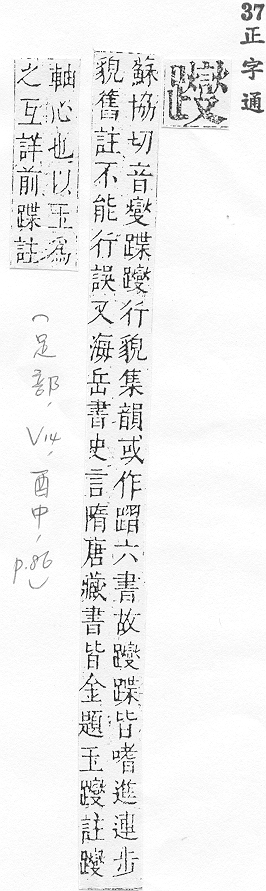 37正字通
躞
蘇協切音燮蹀躞行貌集韻或作躢六書故躞蹀皆嗜進連步
貌舊註不能行誤又海岳書史言隋唐藏書皆金題玉躞註躞
軸心也以玉為
之互詳前蹀註
(足部,V14,酉中,p.86)